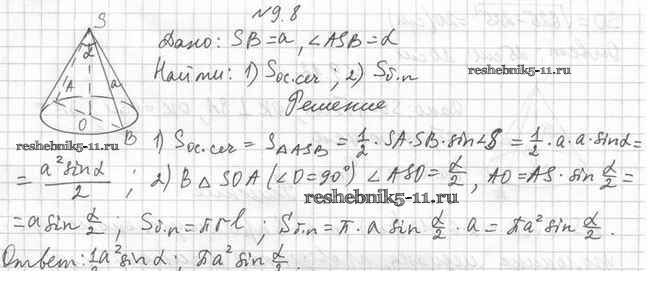 №9.8
S
α
a
A
O
B
Дано: SB=a, ∠ASB=α
Найти: 1) Sос.сеч ; 2) Sб.п
reshebnik5-11.ru
Решение
reshebnik5-11.ru
1) Sос.сеч = S△ASB = 1/2 · SA·SB·sin∠S = 1/2 · a·a·sinα =
= a²sinα/2 ; 2) В △ SOA (∠O=90°) ∠ASO= α/2 , AO=AS · sin α/2 =
reshebnik5-11.ru
= a sin α/2 ; Sб.п = πrl ; Sб.п = π · a sin α/2 · a = πa² sin α/2 .
Ответ: 1/2 a² sin α ; πa² sin α/2 .